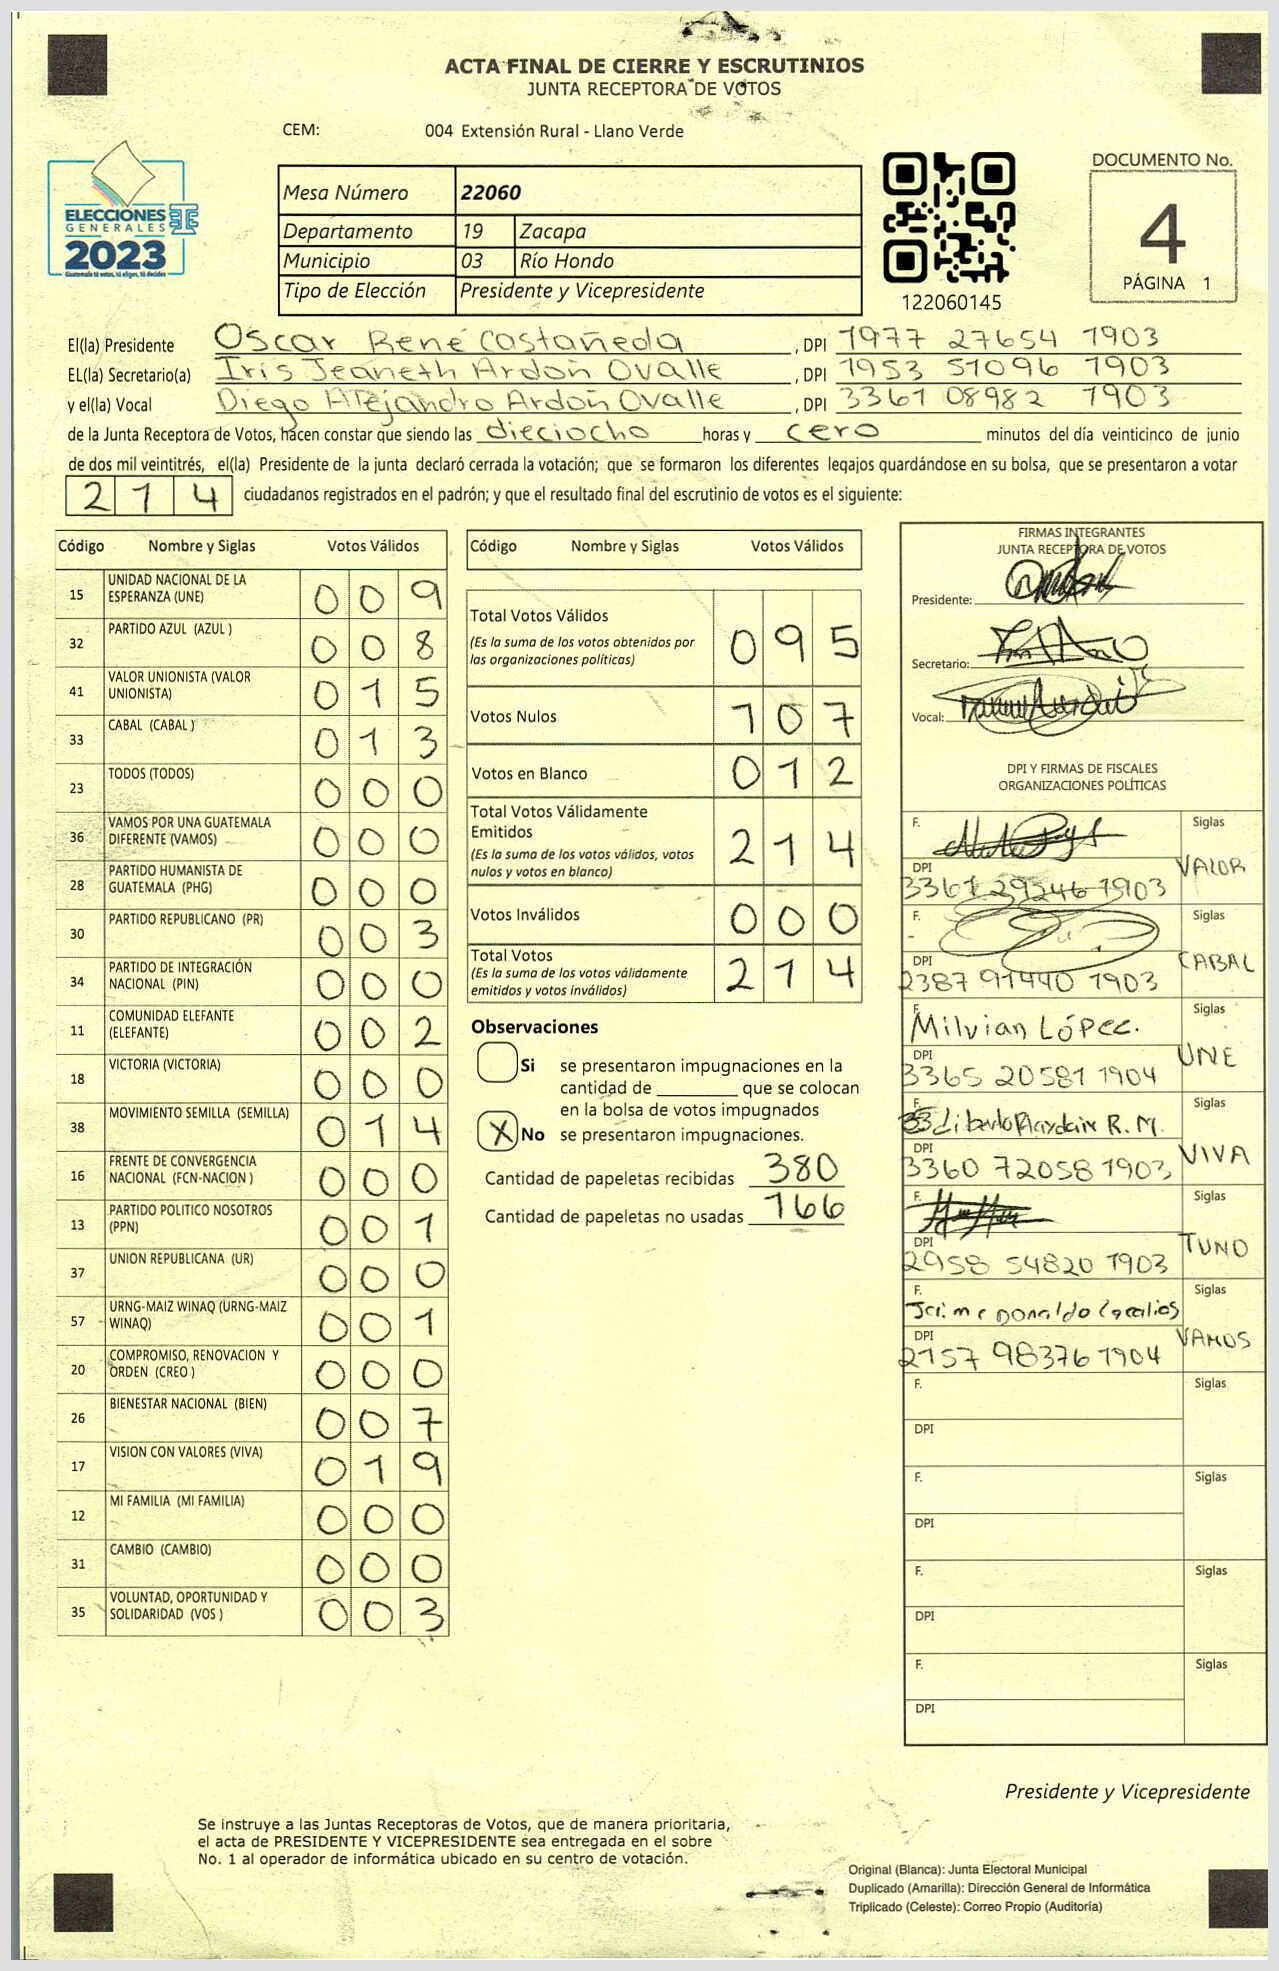 ACTA FINAL DE CIERRE Y ESCRUTINIOS
JUNTA RECEPTORA DE VOTOS
CEM: 004 Extensión Rural - Llano Verde
ELECCIONES
GENERALES
2023
Guatemala tú votas, tú eliges, tú decides
Mesa Número 22060
Departamento 19 Zacapa
Municipio 03 Río Hondo
Tipo de Elección Presidente y Vicepresidente
122060145
DOCUMENTO No.
4
PÁGINA 1
El(la) Presidente Oscar René Castañeda, DPI 1977 27654 1903
EL(la) Secretario(a) Iris Jeaneth Ardón Ovalle, DPI 1953 51096 1903
y el(la) Vocal Diego Alejandro Ardón Ovalle, DPI 3361 08982 1903
de la Junta Receptora de Votos, hacen constar que siendo las dieciocho horas y cero minutos del día veinticinco de junio
de dos mil veintitrés, el(la) Presidente de la junta declaró cerrada la votación; que se formaron los diferentes legajos guardándose en su bolsa, que se presentaron a votar
214 ciudadanos registrados en el padrón; y que el resultado final del escrutinio de votos es el siguiente:
Código Nombre y Siglas Votos Válidos
15 UNIDAD NACIONAL DE LA ESPERANZA (UNE) 009
32 PARTIDO AZUL (AZUL ) 008
41 VALOR UNIONISTA (VALOR UNIONISTA) 015
33 CABAL (CABAL ) 013
23 TODOS (TODOS) 000
36 VAMOS POR UNA GUATEMALA DIFERENTE (VAMOS) 000
28 PARTIDO HUMANISTA DE GUATEMALA (PHG) 000
30 PARTIDO REPUBLICANO (PR) 003
34 PARTIDO DE INTEGRACIÓN NACIONAL (PIN) 000
11 COMUNIDAD ELEFANTE (ELEFANTE) 002
18 VICTORIA (VICTORIA) 000
38 MOVIMIENTO SEMILLA (SEMILLA) 014
16 FRENTE DE CONVERGENCIA NACIONAL (FCN-NACION ) 000
13 PARTIDO POLITICO NOSOTROS (PPN) 001
37 UNION REPUBLICANA (UR) 000
57 URNG-MAIZ WINAQ (URNG-MAIZ WINAQ) 001
20 COMPROMISO, RENOVACION Y ORDEN (CREO ) 000
26 BIENESTAR NACIONAL (BIEN) 007
17 VISION CON VALORES (VIVA) 019
12 MI FAMILIA (MI FAMILIA) 000
31 CAMBIO (CAMBIO) 000
35 VOLUNTAD, OPORTUNIDAD Y SOLIDARIDAD (VOS ) 003
Código Nombre y Siglas Votos Válidos
Total Votos Válidos 095
(Es la suma de los votos obtenidos por las organizaciones políticas)
Votos Nulos 107
Votos en Blanco 012
Total Votos Válidamente Emitidos 214
(Es la suma de los votos válidos, votos nulos y votos en blanco)
Votos Inválidos 000
Total Votos 214
(Es la suma de los votos válidamente emitidos y votos inválidos)
Observaciones
Si se presentaron impugnaciones en la
cantidad de ________ que se colocan
en la bolsa de votos impugnados
X No se presentaron impugnaciones.
Cantidad de papeletas recibidas 380
Cantidad de papeletas no usadas 166
FIRMAS INTEGRANTES
JUNTA RECEPTORA DE VOTOS
Presidente:
Secretario:
Vocal:
DPI Y FIRMAS DE FISCALES
ORGANIZACIONES POLÍTICAS
F. Siglas
DPI 3361 29246 1903 VALOR
F. Siglas
DPI 2387 91440 1903 CABAL
F. Milvian López. Siglas
DPI 3365 20581 1904 UNE
F. R. M. Siglas
DPI 3360 72058 1903 VIVA
F. Siglas
DPI 2958 54820 1903 TUNO
F. Jaime Donaldo Siglas
DPI 2157 98376 1904 VAMOS
F. Siglas
DPI
F. Siglas
DPI
F. Siglas
DPI
F. Siglas
DPI
Presidente y Vicepresidente
Se instruye a las Juntas Receptoras de Votos, que de manera prioritaria,
el acta de PRESIDENTE Y VICEPRESIDENTE sea entregada en el sobre
No. 1 al operador de informática ubicado en su centro de votación.
Original (Blanca): Junta Electoral Municipal
Duplicado (Amarilla): Dirección General de Informática
Triplicado (Celeste): Correo Propio (Auditoría)